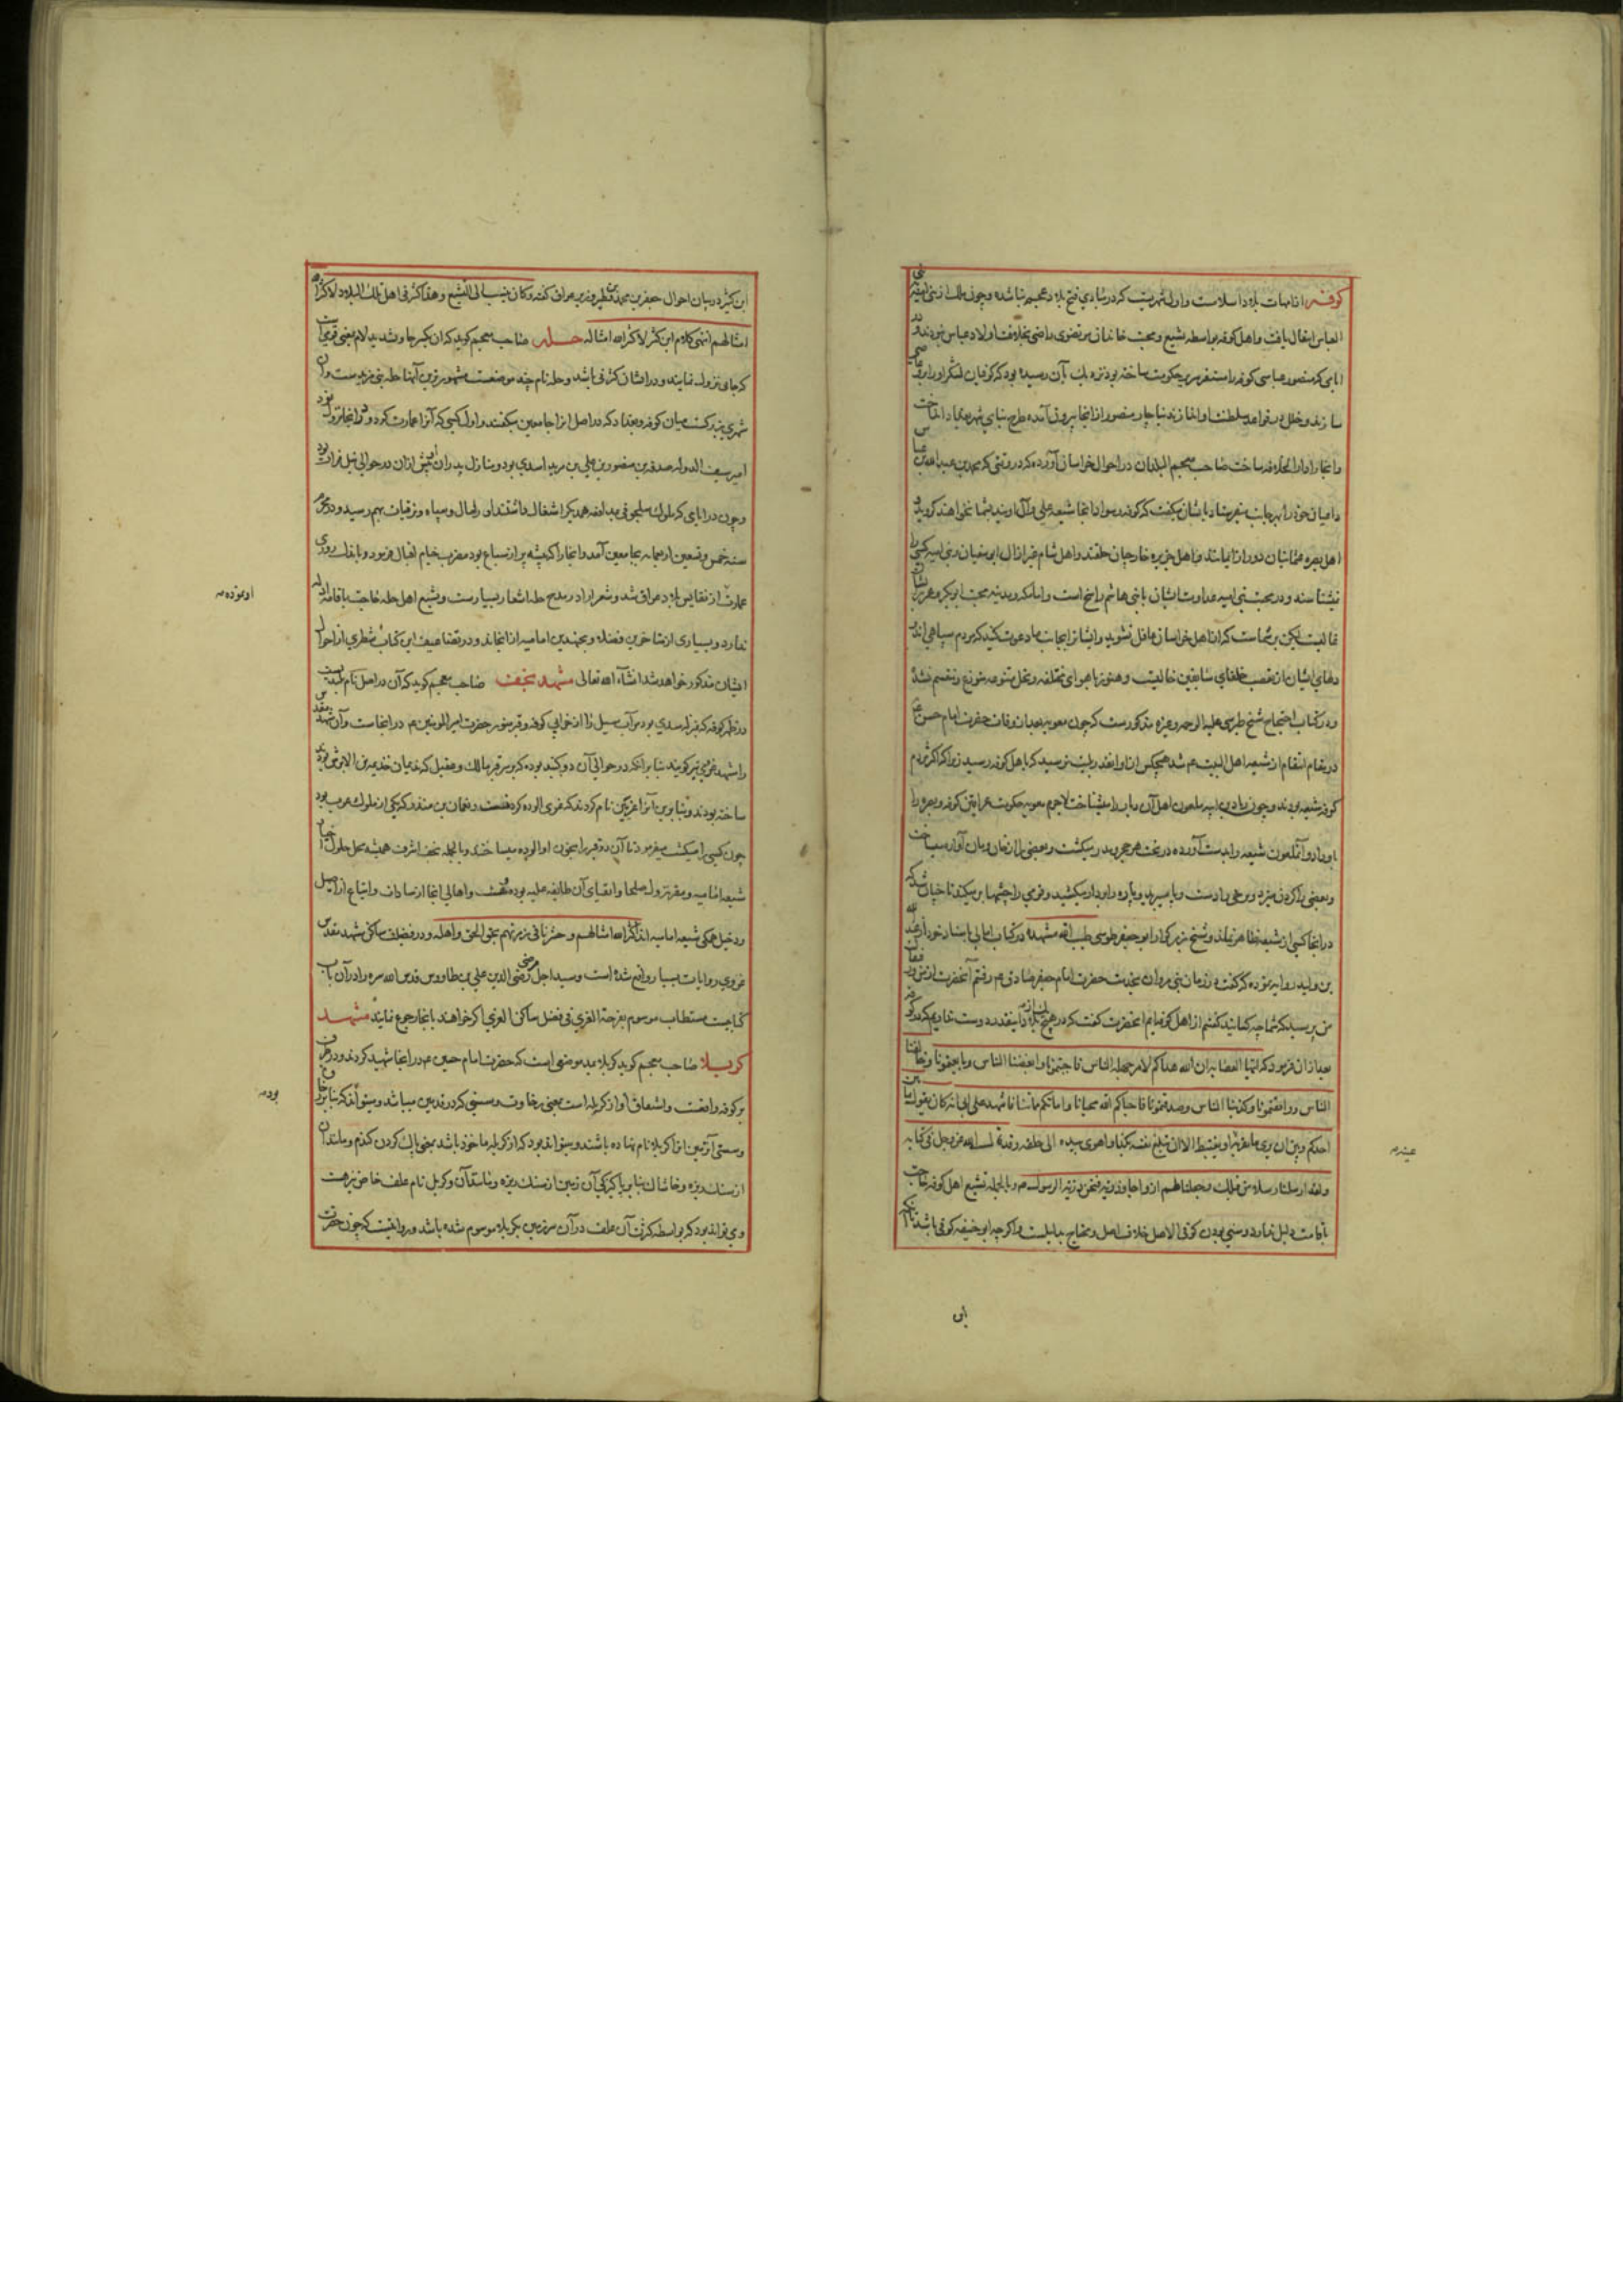 کوفه از امهات بلاد اسلامست واول شهریست که در مبادی فتح بلاد عجم بنا شده و چون ملک از بنی امیه به بنی
العباس انتقال یافت واهل کوفه بواسطه تشیع ومحبت خاندان مرتضوی راضی بخلافت اولاد عباس نبودند در
ایامی که منصور عباسی کوفه را مستقر سریر حکومت ساخته بود نزدیک بآن رسید که کوفیان لشکر او را
سازند وخلل در قواعد سلطنت او اندازند بنابراین منصور از انجا بیرون آمده طرح بنای شهر بغداد انداخت
وانجا را دار الخلافه ساخت صاحب معجم البلدان در احوال خراسان آورده که در وقتی که محمد بن علی بن عبد الله بن عباس
داعیان خود را بهر جانب میفرستاد بایشان میگفت که کوفه وسواد انجا شیعه علی وآل اویند بشما نخواهند گروید و
اهل بصره عثمانیان دور از ایمانند واهل جزیره خارجیان حلقند واهل شام غیر از آل ابی سفیان وبنی امیه کسی را
نشناسند ودر محبت بنی امیه وعداوت ایشان با بنی هاشم راسخ است واما مکه ومدینه محبت ابوبکر وعمر بر ایشان
غالبست لیکن بر شماست که از اهل خراسان غافل نشوید وایشان را بجانب ما دعوت کنید که مردم سپاهی اند
دلهای ایشان از تعصب خلفای سابقین خالیست وهنوز باهوای مختلفه ونحل متنوعه متوزع ومنقسم نشده
ودر کتاب احتجاج شیخ طبرسی علیه الرحمه وغیره مذکورست که چون معویه بعد از وفات حضرت امام حسن ع
در مقام انتقام از شیعه اهل البیت ع شد هیچکس را از او آنقدر بلیت نرسید که باهل کوفه رسید زیرا که اکثر مردم
کوفه شیعه بودند و چون زیاد بن ابیه ملعون اهل آن باب را میشناخت لاجرم معویه حکومت عراقین کوفه وبصره را
باو داد وآن ملعون شیعه را بدست آورده در تحت هر حجر ومدر میکشت وبعضی را از خان ومان آواره میساخت
وبعضی را گردن میزد وبرخی را دست وپا میبرید وپاره را بر دار میکشید وقومی را چشمها بر میکند تا چنان شد که
در انجا کسی از شیعه ظاهر نماند وشیخ بزرگوار ابو جعفر طوسی طیب الله مشهده در کتاب امالی باسناد خود از عبد الله
بن ولید روایت نموده که گفت در زمان بنی مروان بخدمت حضرت امام جعفر صادق ع رفتم آنحضرت از
من پرسید که شما چه کسانید گفتم از اهل کوفه ایم آنحضرت گفت که در هیچ بلاد اینقدر دوست نداریم که در کوفه
بعد ازان فرمود که ایتها العصابه ان الله هداکم لامر جهله الناس فاحببتمونا وابغضنا الناس وبایعتمونا وخالفنا
الناس ووافقتمونا وکذبنا الناس وصدقتمونا فاحیاکم الله محیانا واماتکم مماتنا فاشهد علی ابی انه کان یقول ما بین
احدکم وبین ان یری ما یقر به او یغتبط الا ان تبلغ نفسه هکذا واهوی بیده الی حلقه وقد قال الله عز وجل فی کتابه
ولقد ارسلنا رسلا من قبلک وجعلنا لهم ازواجا وذریه فنحن ذریه الرسول ص وبالجمله تشیع اهل کوفه حاجت
باقامت دلیل ندارد وسنی بودن کوفی الاصل خلاف اصل ومحتاج بدلیلست واگر چه ابو حنیفه کوفی باشد
عینه
ابن
ابن کثیر در بیان احوال جعفر بن محمد بن فطیر وزیر عراق گفته وکان ینسب الی التشیع وهذا کثیر فی اهل تلک البلاد لا کثر الله
امثالهم انتهی کلام ابن کثیر لا کثر الله امثاله حله صاحب معجم گوید که آن بکسر حا وتشدید لام بمعنی قومیست
که جای نزول نمایند ودر ایشان کثرتی باشد وحله نام چند موضعست مشهورترین آنها حله بنی مزیدست وآن
شهری بزرگست میان کوفه وبغداد که در اصل انرا جامعین میگفتند واول کسی که آنرا عمارت کرد ودر انجا نزول نمود
امیر سیف الدوله صدقه بن منصور بن علی بن مزید اسدی بود ومنازل پدران او پیش ازان در حوالی نیل فرات بود
وچون در ایامی که ملوک سلجوقی بمدافعه همدیگر اشتغال داشتند او را مال وسپاه وترقیات بهم رسید در محرم
سنه خمس وتسعین واربعمایه بجامعین آمد وانجا را که بیشه پر از سباع بود مضرب خیام اقبال فرمود وباندک روزی
عمارت از نفایس بلاد عراق شد وشعرا را در مدح حله اشعار بسیارست وتشیع اهل حله حاجت باقامت دلیل
ندارد وبسیاری از متاخرین فضلا ومجتهدین امامیه از انجااند ودر تضاعیف این کتاب شطری از احوال
ایشان مذکور خواهد شد انشاء الله تعالی مشهد نجف صاحب معجم گوید که آن در اصل نام بندیست
در ظهر کوفه که بمنزله سدی بود مر آب سیل را از خرابی کوفه وقبر منور حضرت امیر المومنین ع در انجاست وآن مشهد مقدس
را مشهد غروی نیز گویند بنا برانکه در حوالی آن دو گنبد بوده که بر سر قبر مالک وعقیل که ندیمان جذیمه بن الابرش بودند
ساخته بودند وبنابرین آنرا غریین نام کردند که غری آلوده کردنست ونعمان بن منذر که یکی از ملوک عرب بود
چون کسی را میکشت میفرمود تا آن دو قبر را بخون او آلوده میساختند وبالجمله نجف اشرف همیشه محل حلول اخیار
شیعه امامیه ومقر نزول صلحا واتقیای آن طایفه علیه بوده وهست واهالی انجا از سادات واتباع از اصیل
ودخیل همگی شیعه امامیه اند کثر الله امثالهم وحشرنا فی زمرتهم بحق الحق واهله ودر فضیلت ساکنی مشهد مقدس
غروی روایات بسیار واقع شده است وسید اجل رضی الدین علی بن طاووس قدس الله سره را در آن باب
کتابیست مستطاب موسوم بفرحة الغری فی فضل ساکن الغری اگر خواهند بانجا رجوع نمایند مشهد
کربلا صاحب معجم گوید کربلا بمد موضعی است که حضرت امام حسین ع در انجا شهید کردند ودر طرف
بر کوفه واقعست واشتقاق او از کربله است بمعنی رخاوت وسستی که در قدمین میباشد ومیتواند که بنا بر رخاوت
وسستی آن زمین انرا کربلا نام نهاده باشند ومیتواند بود که از کربله ماخوذ باشد بمعنی پاک کردن گندم ومانند آن
از سنک ریزه وخاشاک بنا بر پاکیزگی آن زمین از سنک ریزه ومانند آن وکربل نام علف خاص نیز هست
ومی تواند بود که بواسطه کثرت آن علف در آن سرزمین بکربلا موسوم شده باشد ومرویست که چون حضرت
او نموده
بود